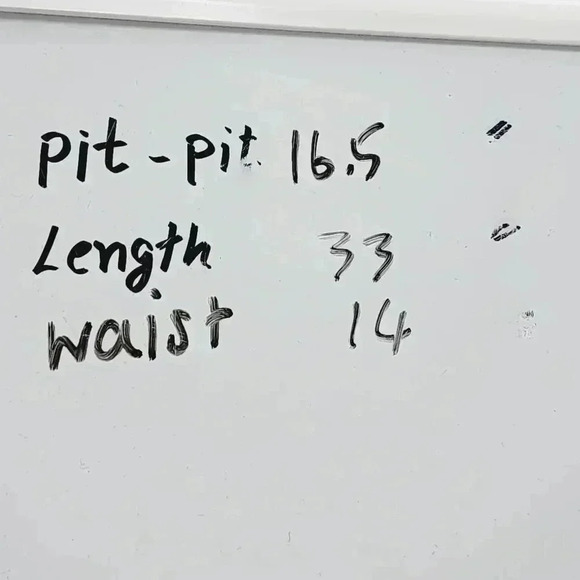 Pit - pit 16.5
Length 33
waist 14